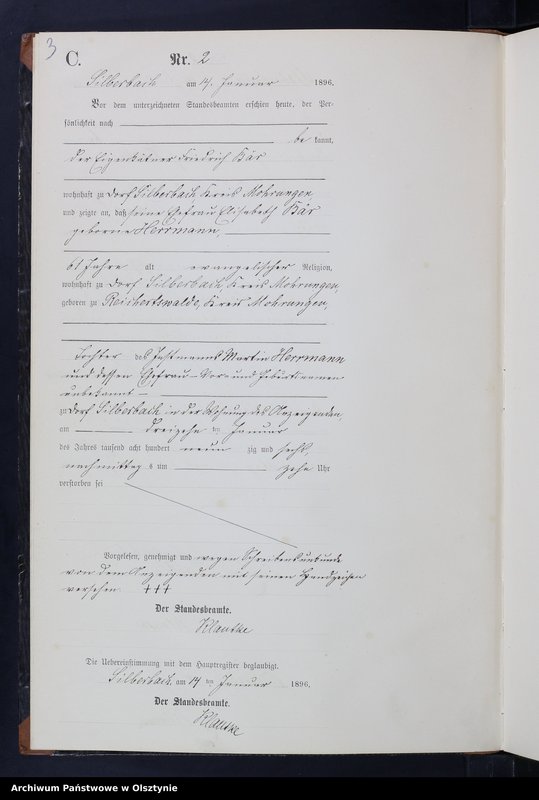 3
C.
Nr. 2
Silberbach am 14. Januar 1896.
Vor dem unterzeichneten Standesbeamten erschien heute, der Per-
sönlichkeit nach
be kannt,
der Eigenkätner Friedrich Bär
wohnhaft zu Dorf Silberbach Kreis Mohrungen
und zeigte an, daß seine Ehefrau Elisabeth Bär
geborene Herrmann,
61 Jahre alt evangelischer Religion,
wohnhaft zu Dorf Silberbach, Kreis Mohrungen,
geboren zu Reichertswalde, Kreis Mohrungen,
Tochter des Instmanns Martin Herrmann
und dessen Ehefrau – Vor- und Geburtsnamen
unbekannt –
zu Dorf Silberbach in der Wohnung des Anzeigenden
am dreizehn ten Januar
des Jahres tausend acht hundert neun zig und sechs,
nachmittag s um zehn Uhr
verstorben sei
Vorgelesen, genehmigt und wegen Schreibensunkunde
von dem Anzeigenden mit seinen Handzeichen
versehen +++
Der Standesbeamte.
Klautke
Die Uebereinstimmung mit dem Hauptregister beglaubigt.
Silberbach, am 14 ten Januar 1896.
Der Standesbeamte.
Klautke
Archiwum Państwowe w Olsztynie